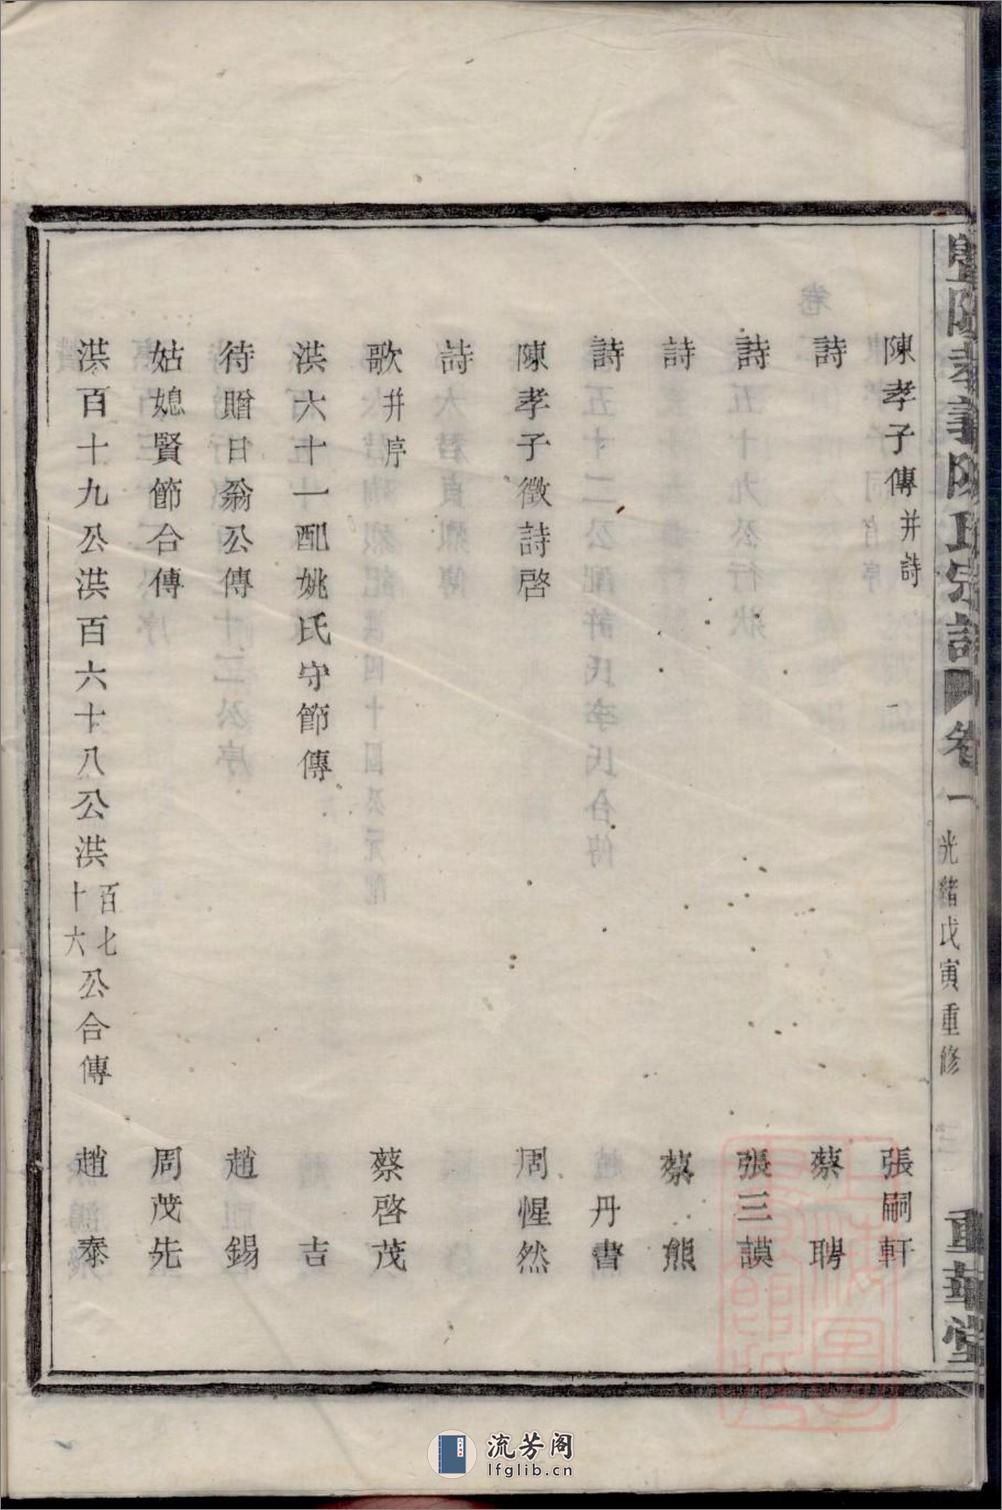 暨陽孝義陳氏宗譜 卷一 光緒戊寅重修 三 重華堂
陳孝子傳 并詩 張嗣軒
詩 蔡聘
詩 張三謨
詩 蔡熊
詩 丹書
陳孝子徵詩啓 周惺然
詩
歌 并序 蔡啓茂
洪六十一配姚氏守節傳 吉
待贈日翁公傳 趙錫
姑媳賢節合傳 周茂先
洪百十九公洪百六十八公洪百七十六公合傳 趙泰
流芳阁
lfglib.cn